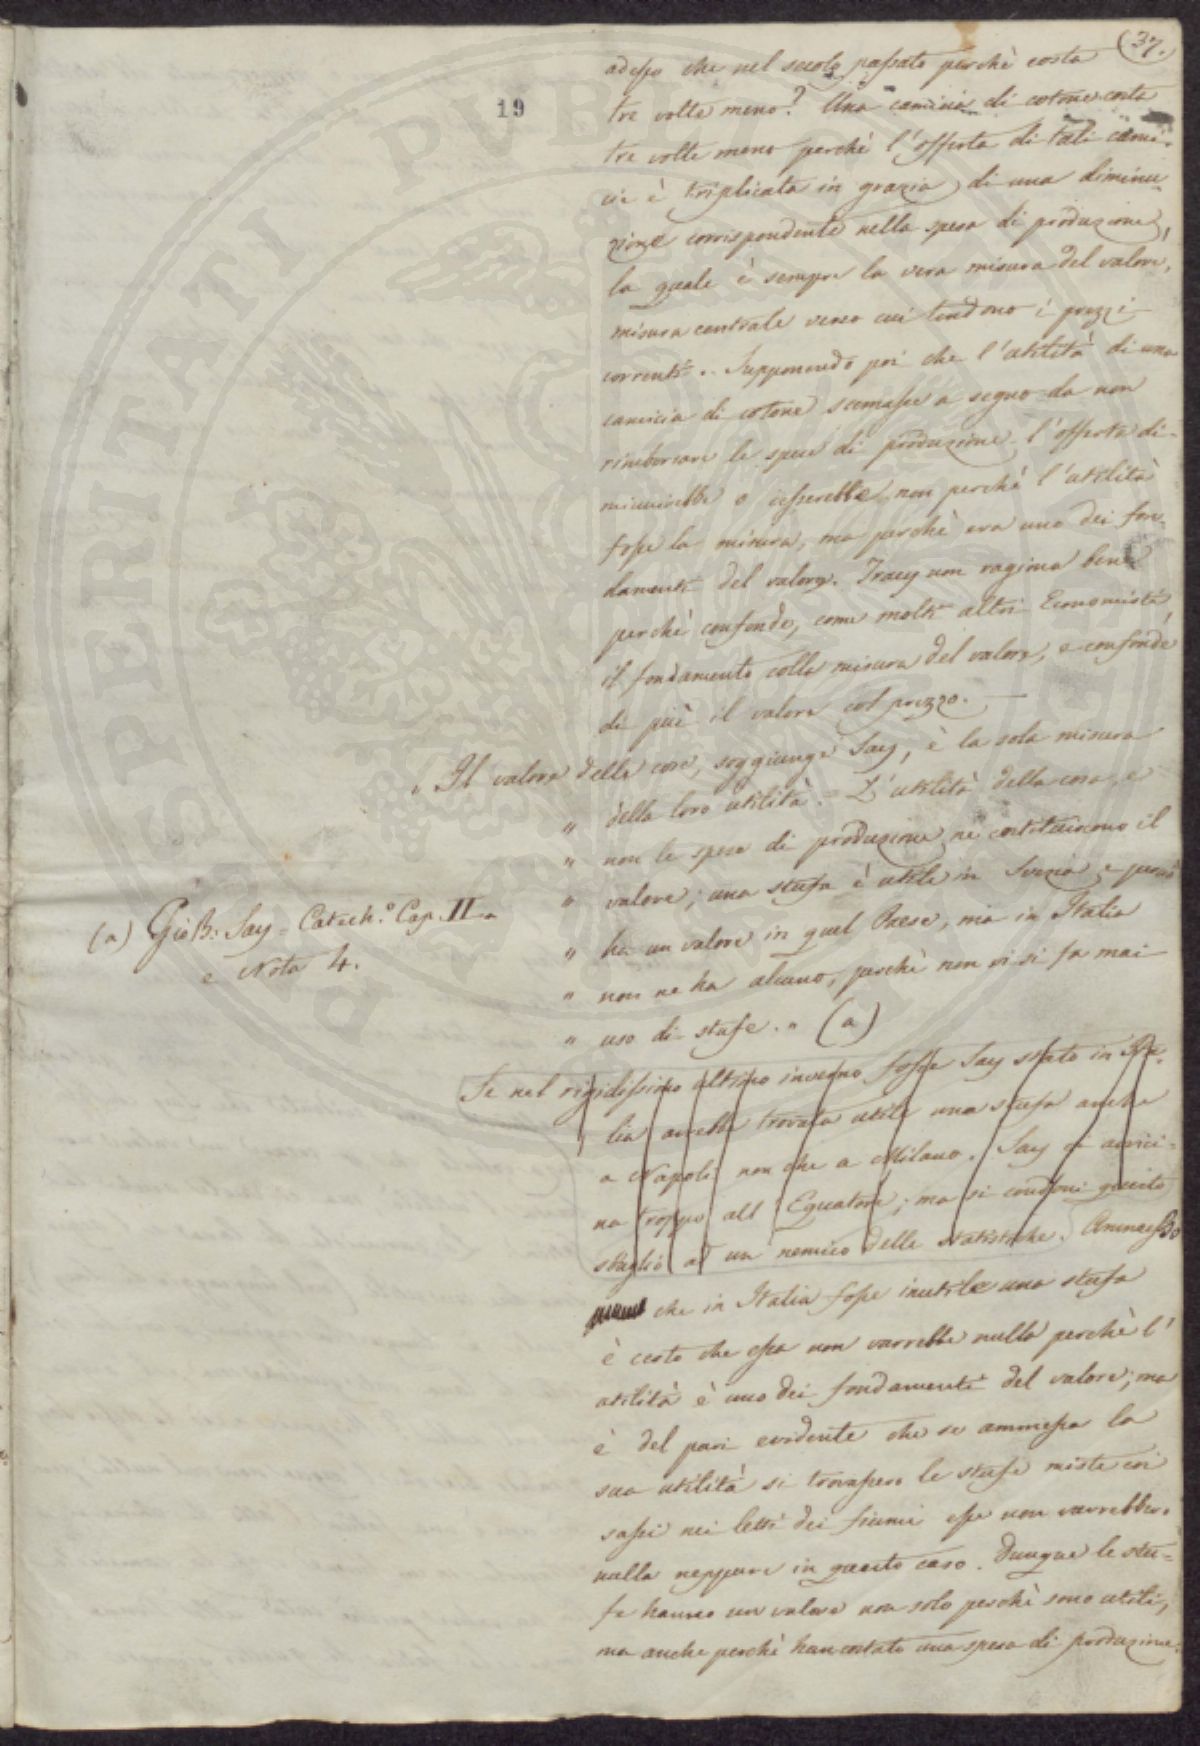 (37.
19
adesso che nel secolo passato perchè costa
tre volte meno? Una camicia di cotone costa
tre volte meno perchè l'offerta di tali cami-
cie è triplicata in grazia di una diminu-
zione corrispondente nella spesa di produzione,
la quale è sempre la vera misura del valore,
misura centrale verso cui tendono i prezzi
correnti. Supponendo poi che l'utilità di una
camicia di cotone scemasse a segno da non
rimborsare le spese di produzione l'offerta di-
minuirebbe o cesserebbe, non perchè l'utilità
fosse la misura, ma perchè era uno dei fon-
damenti del valore. Tracy non ragiona bene
perchè confonde, come molti altri Economisti,
il fondamento colla misura del valore, e confonde
di più il valore col prezzo. —
„ Il valore delle cose, soggiunge Say, è la sola misura
„ della loro utilità. L'utilità della cosa, e
„ non le spese di produzione ne costituiscono il
„ valore; una stufa è utile in Svezia e perciò
„ ha un valore in quel Paese, ma in Italia
„ non ne ha alcuno, perchè non vi si fa mai
„ uso di stufe. „ (a)
(a) Gio B: Say = Catech.o Cap. II.
e Nota 4.
Se nel rigidissimo ultimo inverno fosse Say stato in Ita-
lia avrebbe trovata utile una stufa anche
a Napoli non che a Milano. Say ci avvici-
na troppo all'Equatore; ma si condoni questo
sbaglio ad un nemico delle statistiche. Ammesso
che in Italia fosse inutile una stufa
è certo che essa non varrebbe nulla perchè l'
utilità è uno dei fondamenti del valore; ma
è del pari evidente che se ammessa la
sua utilità si trovassero le stufe miste coi
sassi nei letti dei fiumi esse non varrebbero
nulla neppure in questo caso. Dunque le stu-
fe hanno un valore non solo perchè sono utili,
ma anche perchè han costato una spesa di produzione.
PERITATI PVBLICAE PROSPERITATI